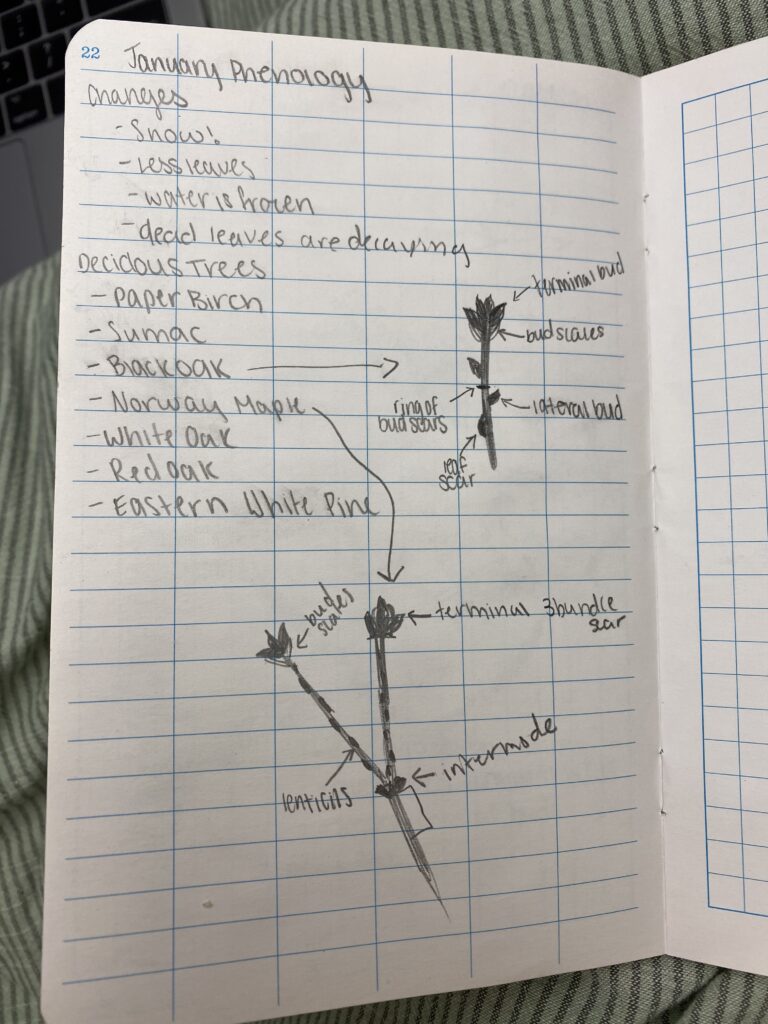 22
January Phenology
Changes
- Snow!
- Less leaves
- water is frozen
- dead leaves are decaying
Decidous Trees
- Paper Birch
- Sumac
- Black oak
- Norway Maple
- White Oak
- Red oak
- Eastern White Pine
terminal bud
bud scales
ring of
bud scars
lateral bud
leaf
scar
bud
scales
terminal 3 bundle
scar
intermode
lenticils